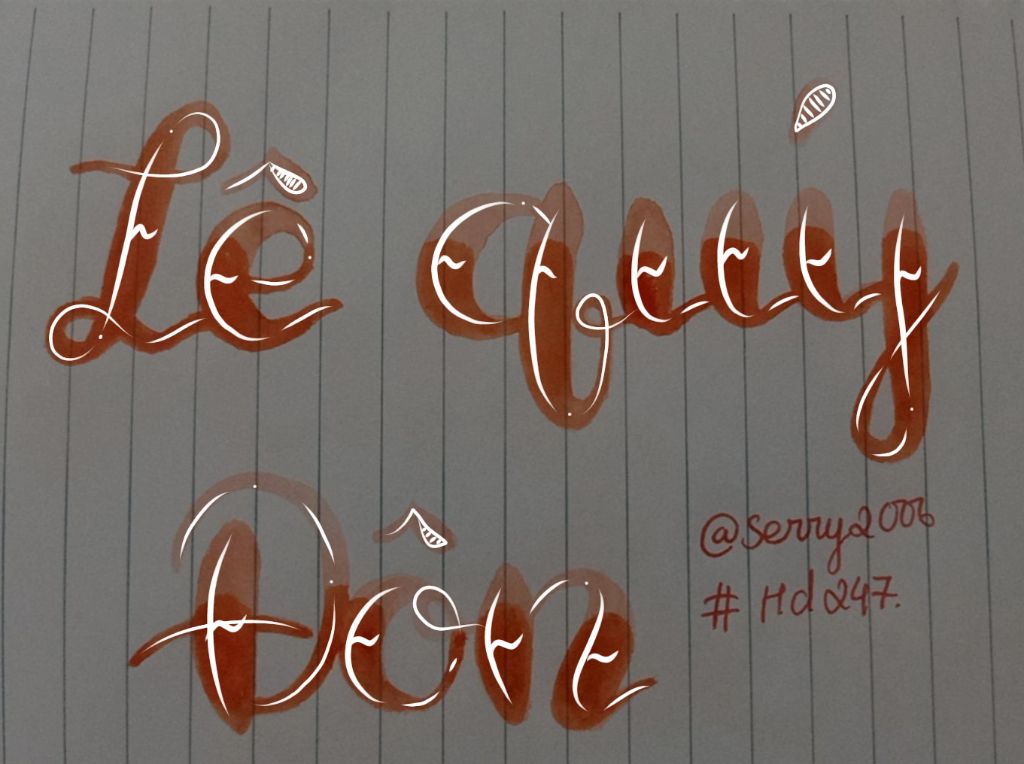 Lê quý
Đôn
@serry2006
# Hd247.